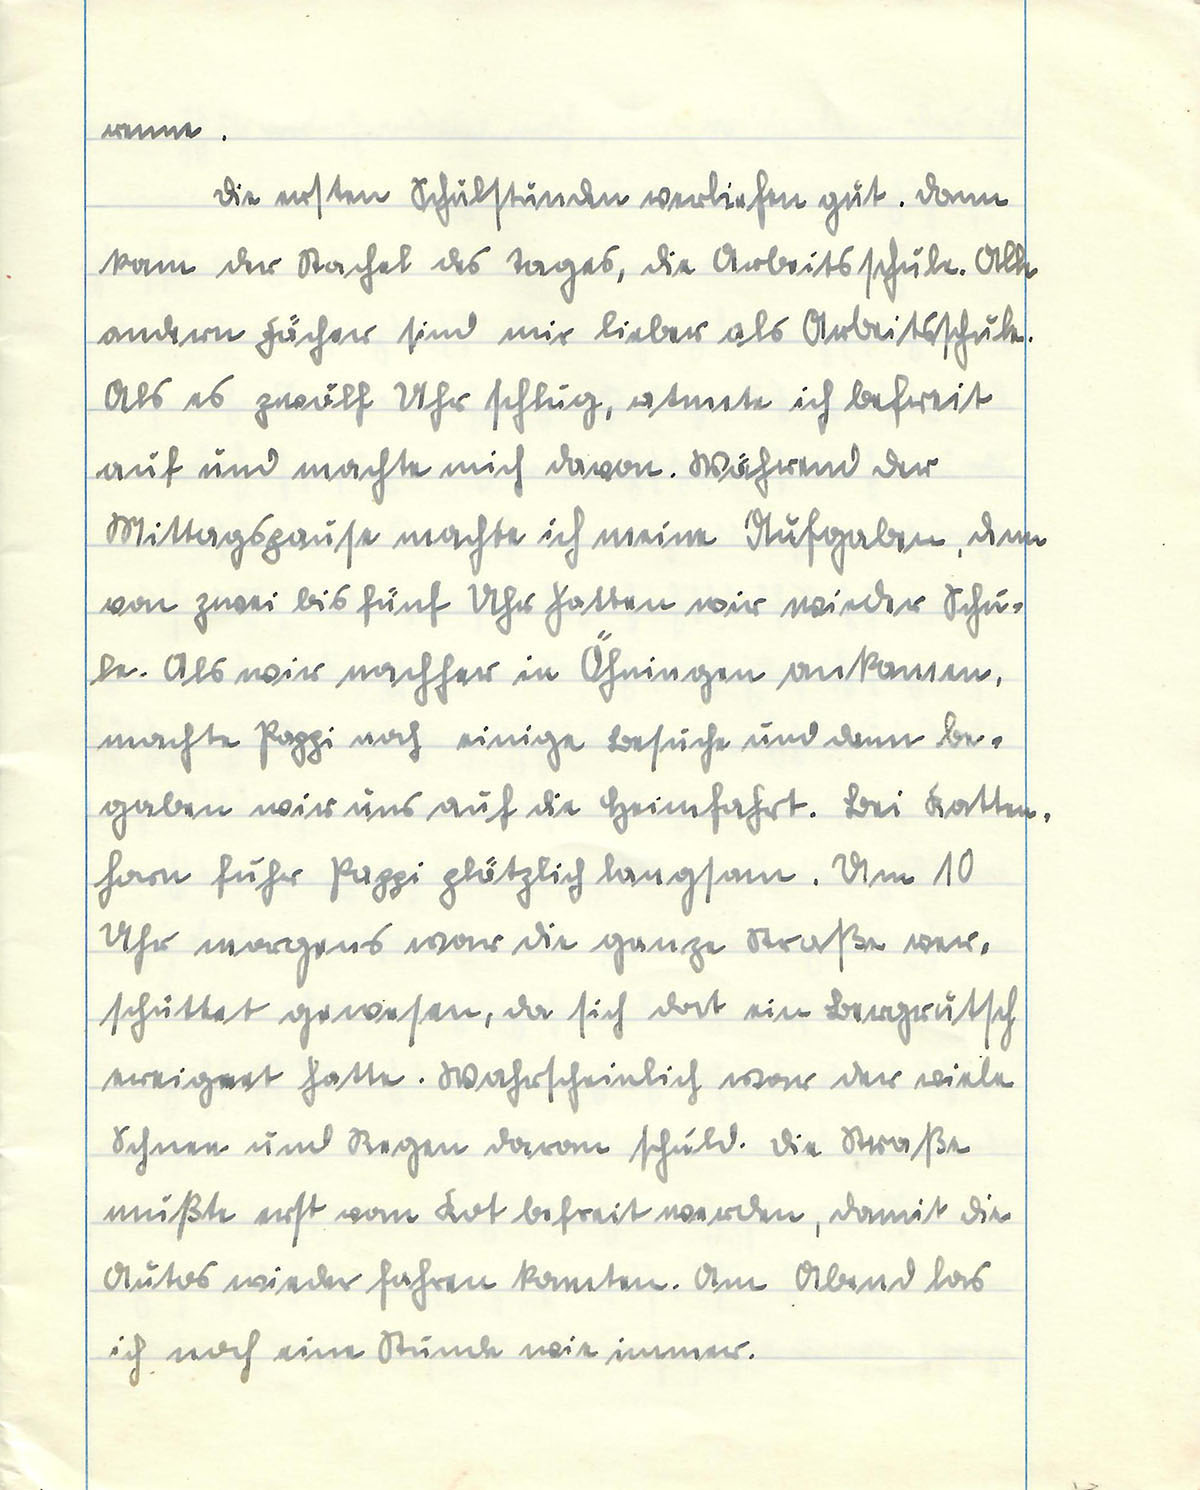 renne.
Die ersten Schulstunden verliefen gut. Dann
kam der Stachel des Tages, die Arbeitsschule. Alle
andern Fächer sind mir lieber als Arbeitsschule.
Als es zwölf Uhr schlug, atmete ich befreit
auf und machte mich davon. Während der
Mittagspause machte ich meine Aufgaben, denn
von zwei bis fünf Uhr hatten wir wieder Schu-
le. Als wir nachher in Öhningen ankamen,
machte Pappi noch einige Besuche und dann be-
gaben wir uns auf die Heimfahrt. Bei Katten-
horn fuhr Pappi plötzlich langsam. Um 10
Uhr morgens war die ganze Straße ver-
schüttet gewesen, da sich dort ein Bergrutsch
ereignet hatte. Wahrscheinlich war der viele
Schnee und Regen daran schuld. Die Straße
mußte erst vom Kot befreit werden, damit die
Autos wieder fahren konnten. Am Abend las
ich noch eine Stunde wie immer.